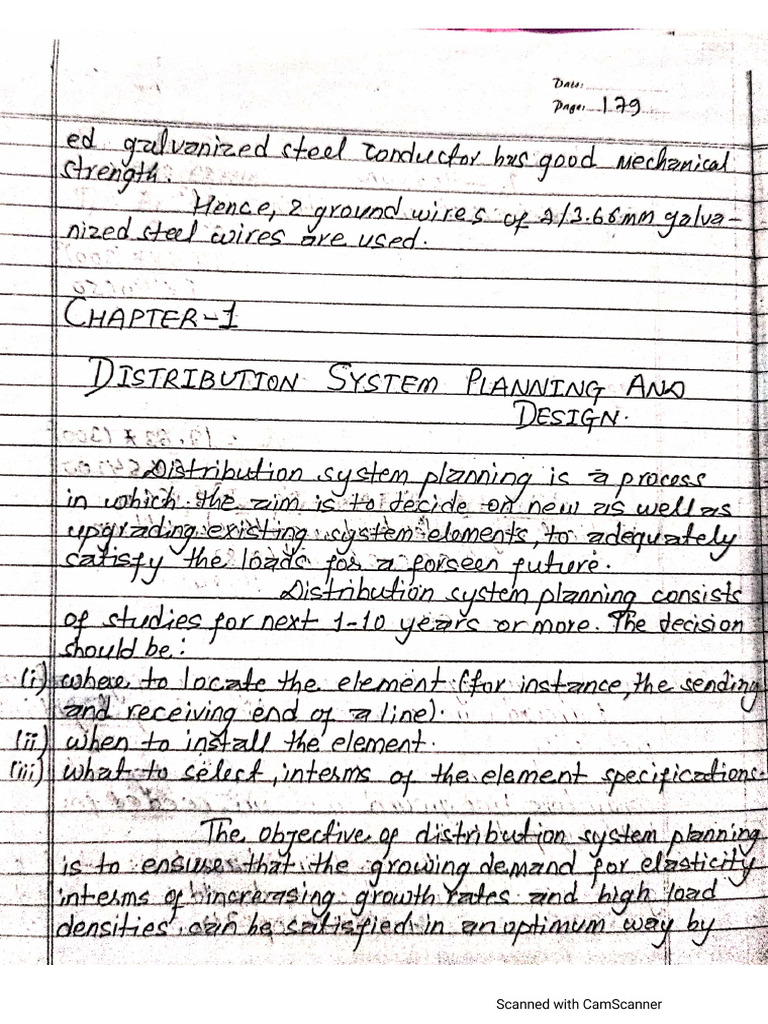 Date:
Page: 179
ed galvanized steel conductor has good mechanical
strength.
Hence, 2 ground wires of 2/3.66mm galva-
nized steel wires are used.
CHAPTER-1
DISTRIBUTION SYSTEM PLANNING AND
DESIGN.
Distribution system planning is a process
in which the aim is to decide on new as well as
upgrading existing system elements, to adequately
satisfy the loads for a forseen future.
Distribution system planning consists
of studies for next 1-10 years or more. The decision
should be:
(i) where to locate the element (for instance, the sending
and receiving end of a line).
(ii) when to install the element.
(iii) what to select, interms of the element specifications.
The objective of distribution system planning
is to ensures that the growing demand for elasticity
interms of increasing growth rates and high load
densities can be satisfied in an optimum way by
Scanned with CamScanner